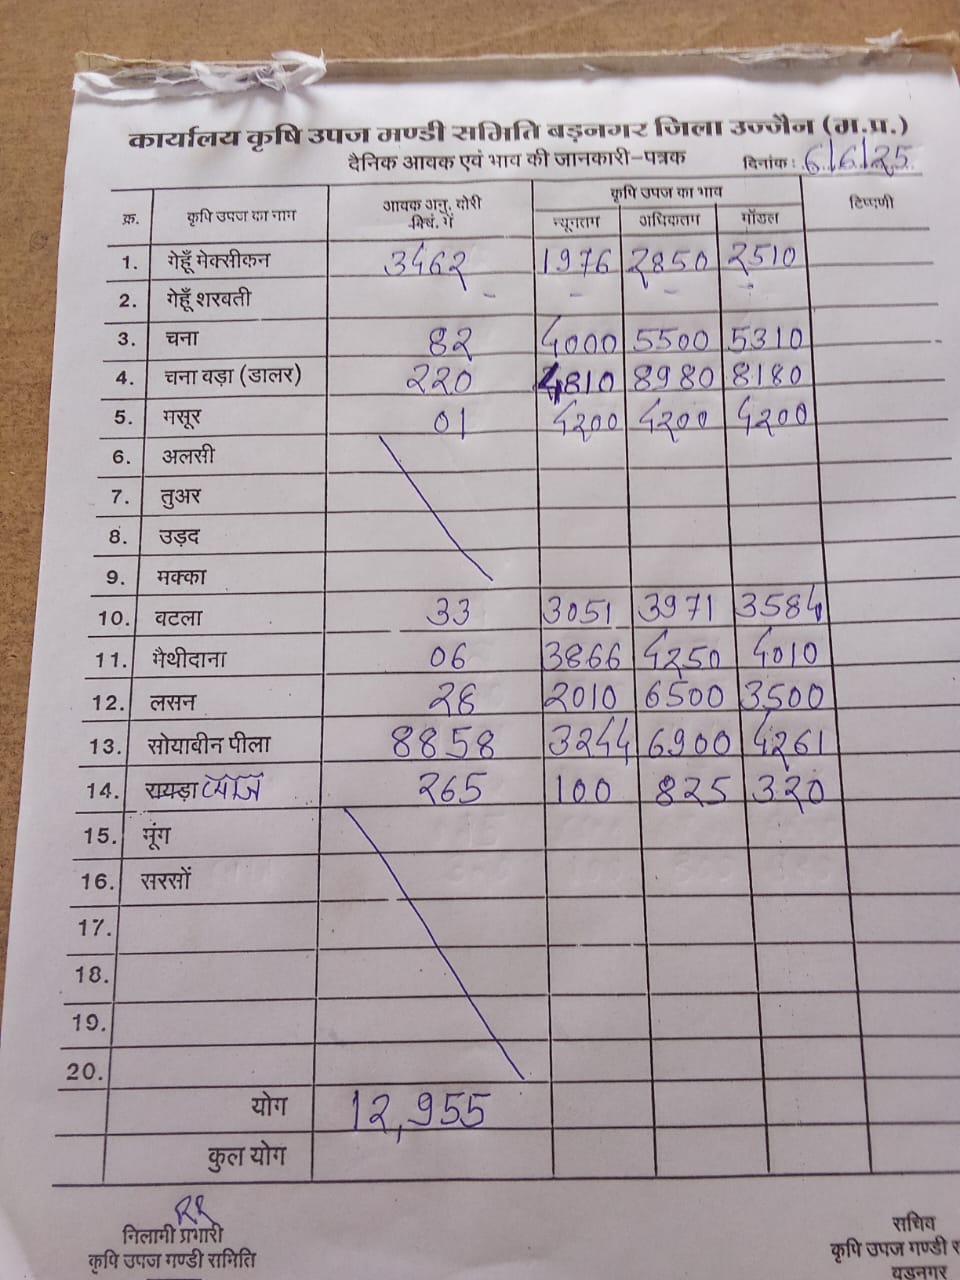 कार्यालय कृषि उपज मण्डी समिति बड़नगर जिला उज्जैन (म.प्र.)
दैनिक आवक एवं भाव की जानकारी-पत्रक दिनांक : 6/6/25
क्र. कृषि उपज का नाम आवक अनु. बोरी क्विं. में कृषि उपज का भाव टिप्पणी
न्यूनतम अधिकतम मॉडल
1. गेहूँ मेक्सीकन 3462 1976 2850 2510
2. गेहूँ शरवती - - - -
3. चना 82 4000 5500 5310
4. चना वड़ा (डालर) 220 4810 8980 8180
5. मसूर 01 4200 4200 4200
6. अलसी
7. तुअर
8. उड़द
9. मक्का
10. वटला 33 3051 3971 3584
11. मैथीदाना 06 3866 4250 4010
12. लसन 28 2010 6500 3500
13. सोयाबीन पीला 8858 3244 6900 4261
14. रायड़ा प्याज 265 100 825 320
15. मूंग
16. सरसों
17.
18.
19.
20.
योग 12,955
कुल योग
RR
निलामी प्रभारी सचिव
कृषि उपज मण्डी समिति कृषि उपज मण्डी स
बड़नगर